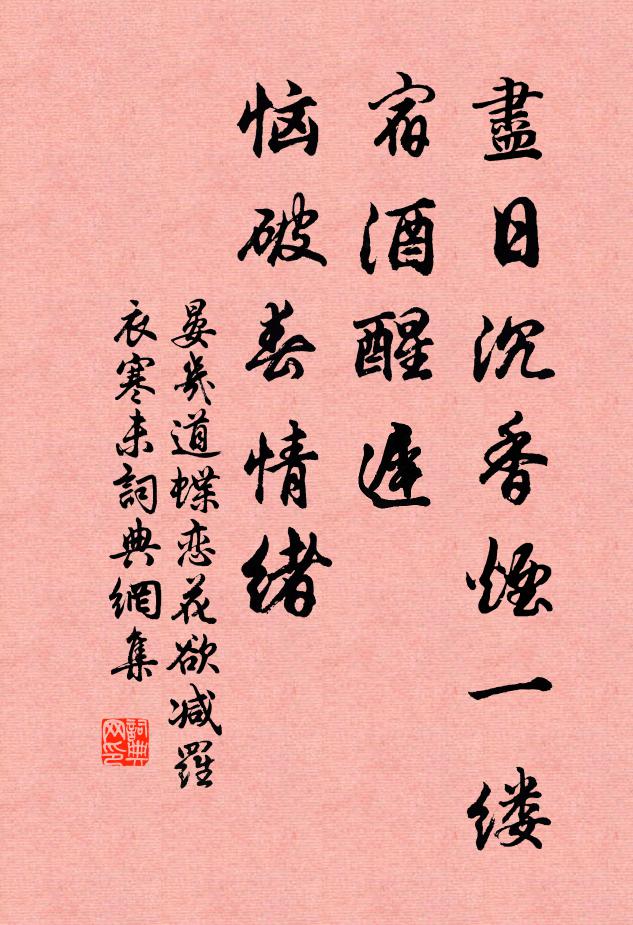 盡日沉香煙一缕
宿酒醒遲
恼破春情绪
晏幾道蝶恋花欲减羅
衣寒未詞典網集
詞典网印